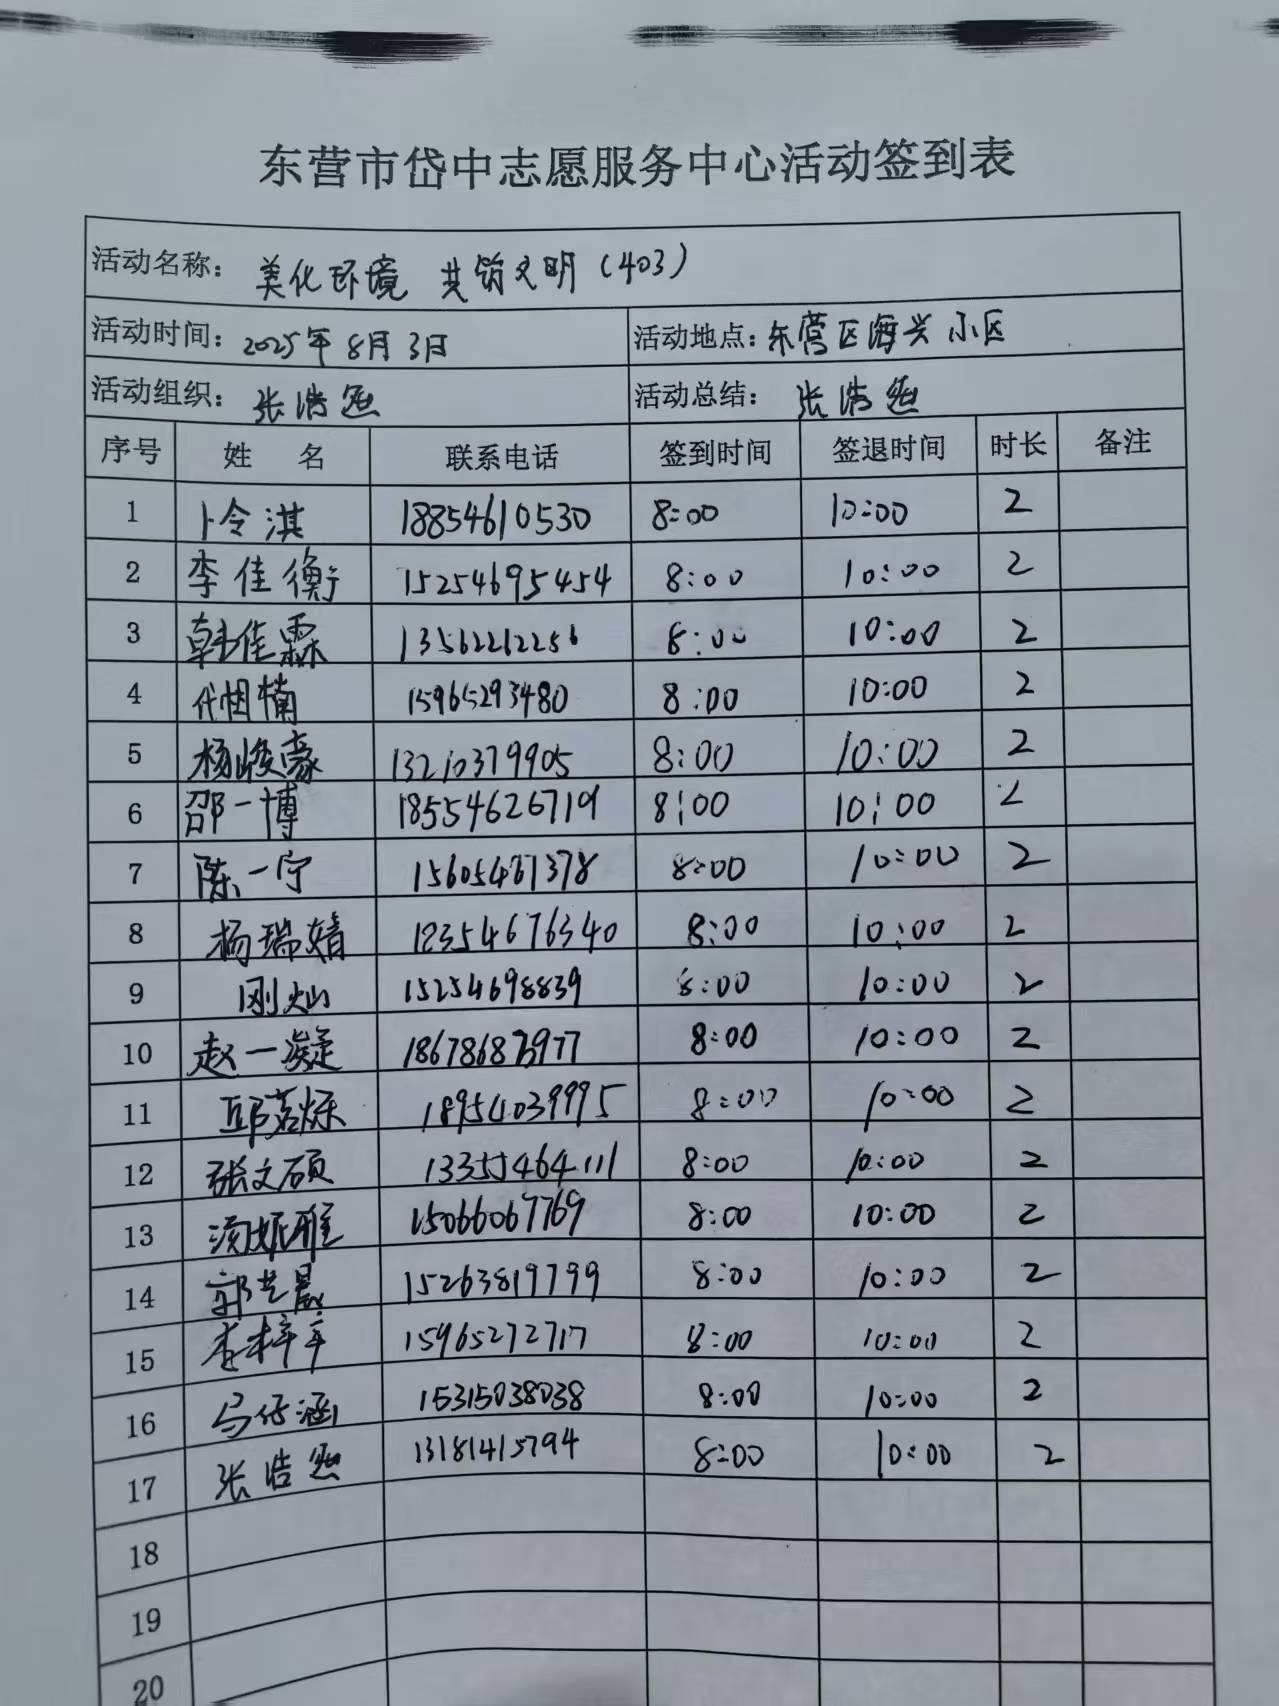 东营市岱中志愿服务中心活动签到表
活动名称: 美化环境 共筑文明(403)
活动时间: 2025年8月3日 活动地点: 东营区海兴小区
活动组织: 张浩然 活动总结: 张浩然
序号 姓 名 联系电话 签到时间 签退时间 时长 备注
1 卜令淇 18854610530 8:00 10:00 2
2 李佳衡 15254695454 8:00 10:00 2
3 韩佳霖 13562212256 8:00 10:00 2
4 代楠 15965293480 8:00 10:00 2
5 杨峻豪 13210379905 8:00 10:00 2
6 邵一博 18554626719 8:00 10:00 2
7 陈一宁 15605467378 8:00 10:00 2
8 杨瑞婧 18354676340 8:00 10:00 2
9 刚灿 15254698839 8:00 10:00 2
10 赵一凝 8:00 10:00 2
11 邱若烁 18954039995 8:00 10:00 2
12 张文硕 13355464111 8:00 10:00 2
13 雅 15066067769 8:00 10:00 2
14 郭艺晨 15263819799 8:00 10:00 2
15 李梓平 15965272717 8:00 10:00 2
16 马仔涵 15315038038 8:00 10:00 2
17 张浩然 13181415794 8:00 10:00 2
18
19
20